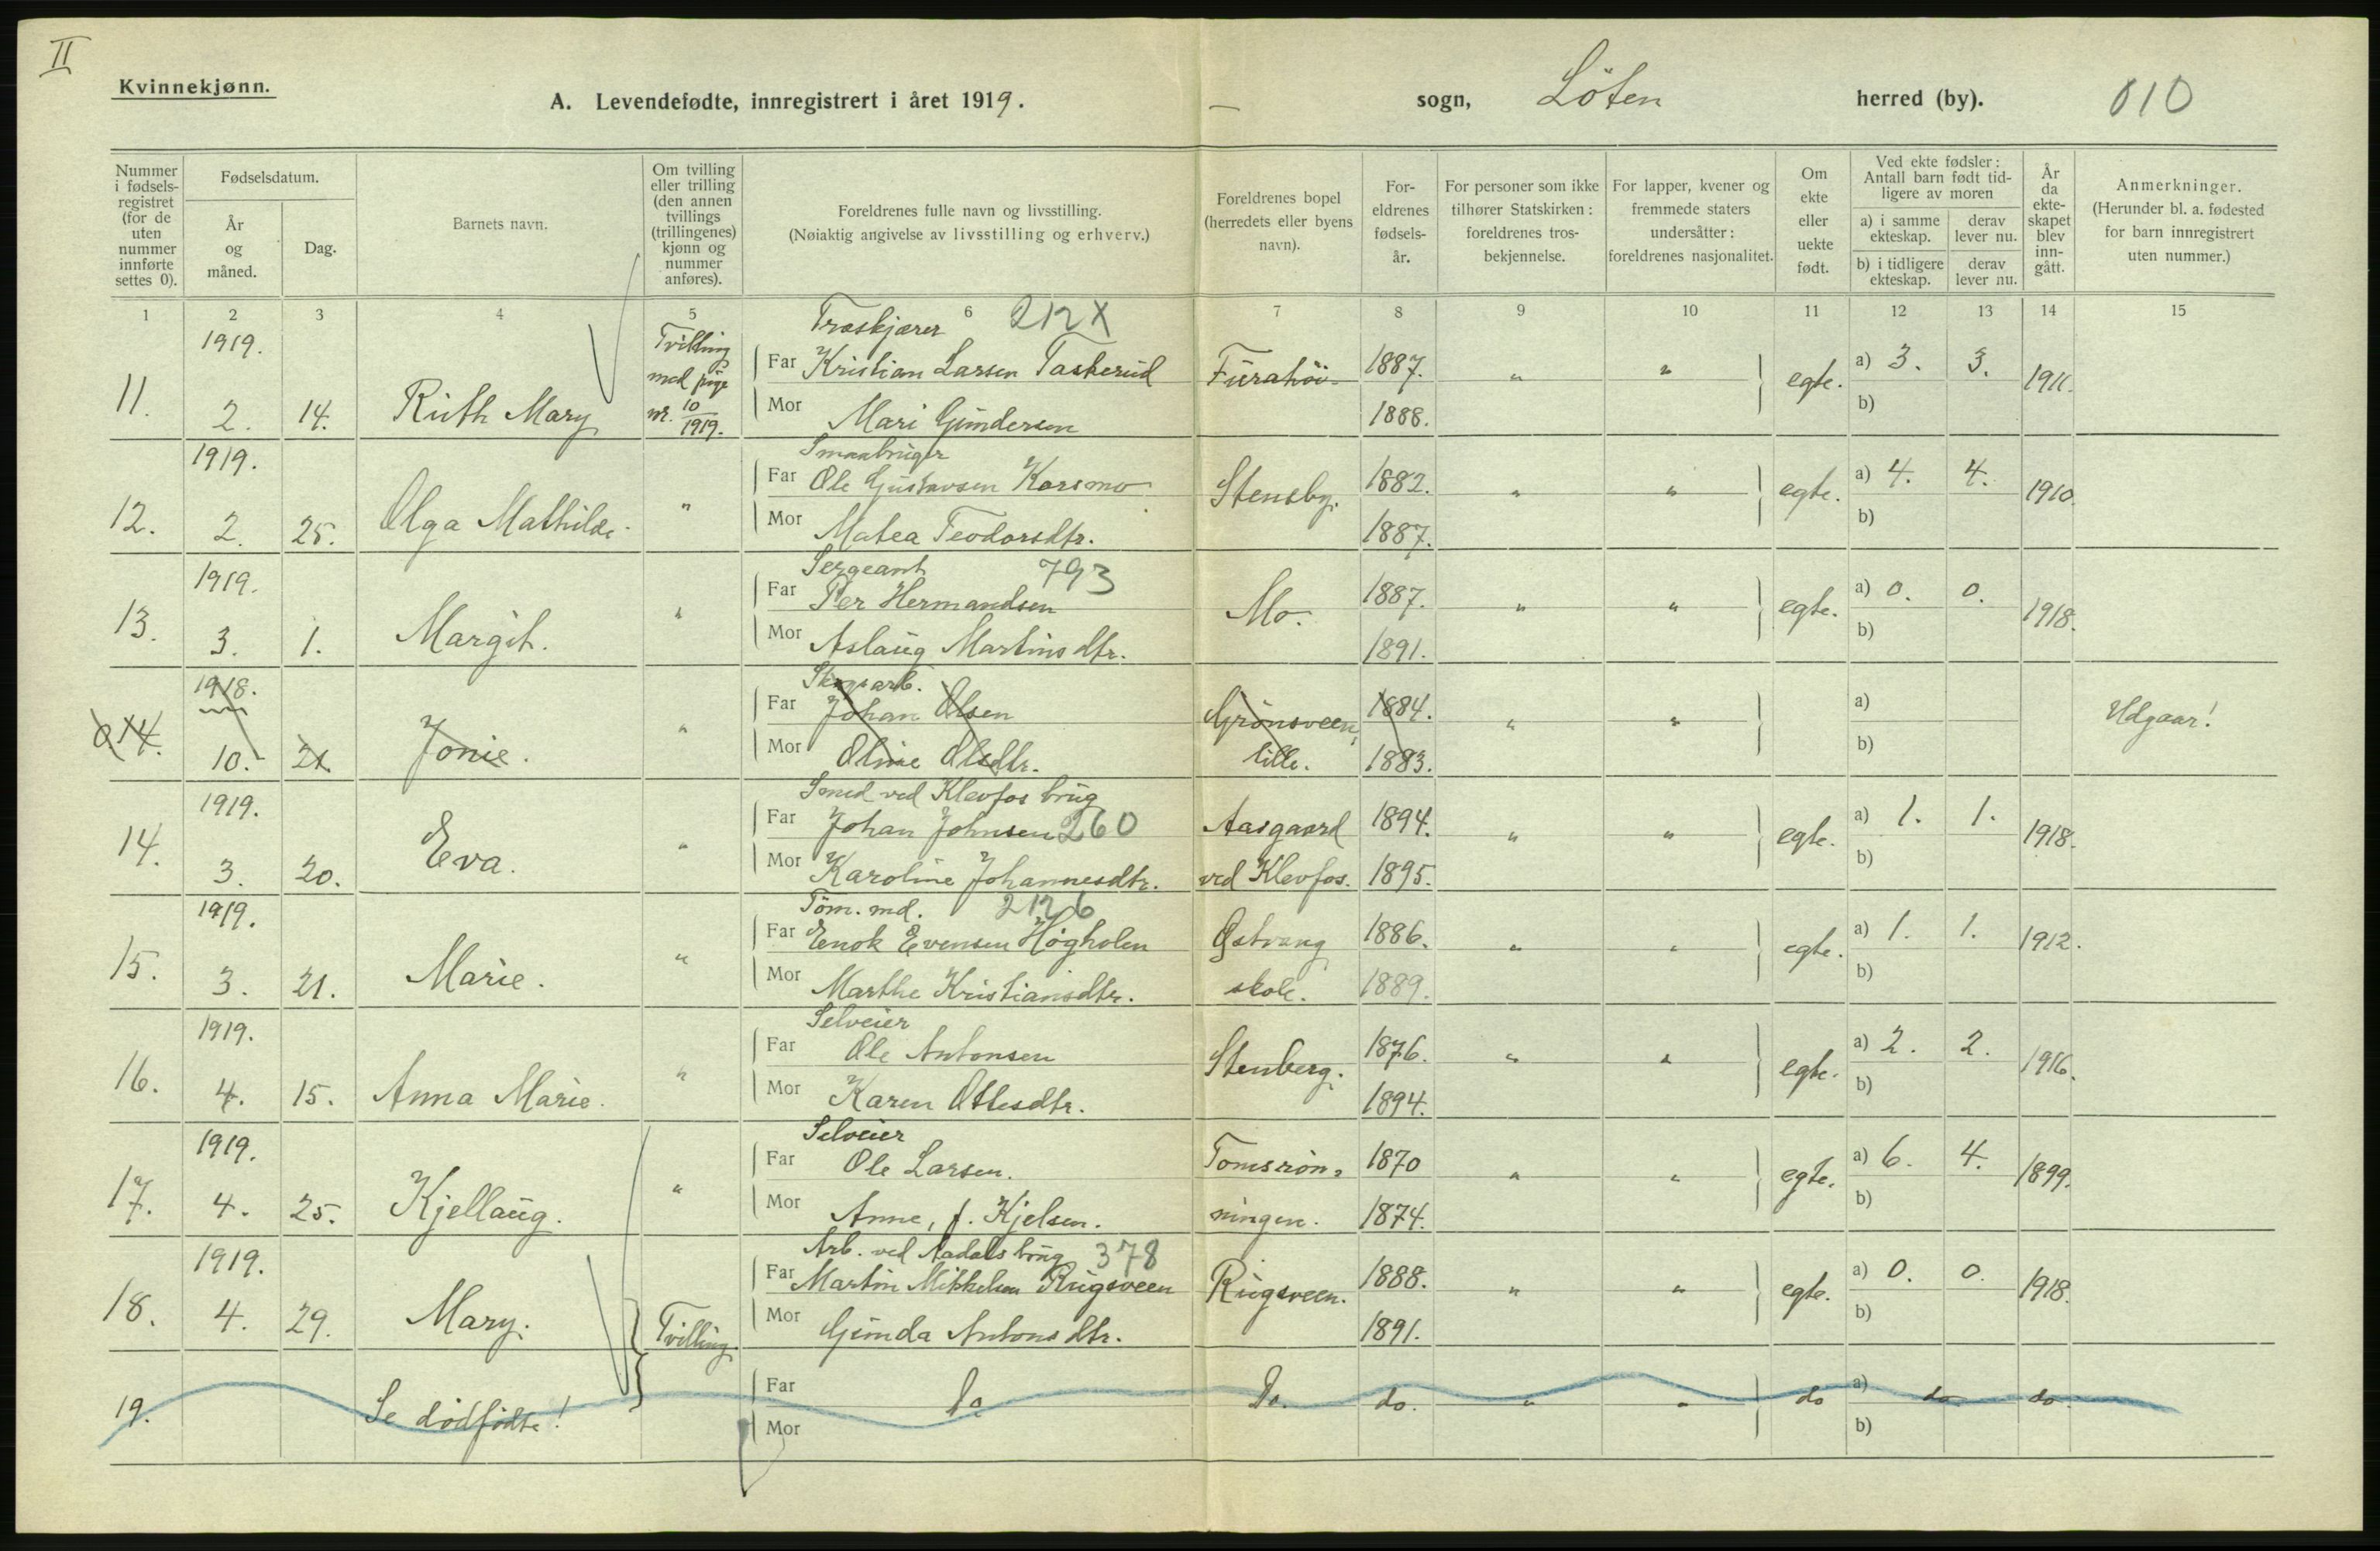 II
Kvinnekjønn.
A. Levendefødte, innregistrert i året 1919.
— sogn, Löten herred (by). 010
Nummer i fødsels-registret (for de uten nummer innførte settes 0).
Fødselsdatum.
År og måned.
Dag.
Barnets navn.
Om tvilling eller trilling (den annen tvillings (trillingenes) kjønn og nummer anføres).
Foreldrenes fulle navn og livsstilling.
(Nøiaktig angivelse av livsstilling og erhverv.)
Foreldrenes bopel (herredets eller byens navn).
For-eldrenes fødsels-år.
For personer som ikke tilhører Statskirken: foreldrenes tros-bekjennelse.
For lapper, kvener og fremmede staters undersåtter: foreldrenes nasjonalitet.
Om ekte eller uekte født.
Ved ekte fødsler: Antall barn født tid-ligere av moren
a) i samme ekteskap.
derav lever nu.
b) i tidligere ekteskap.
derav lever nu.
År da ekte-skapet blev inn-gått.
Anmerkninger.
(Herunder bl. a. fødested for barn innregistrert uten nummer.)
1 2 3 4 5 6 7 8 9 10 11 12 13 14 15
1919. Tvilling Træskjærer 212X
11. 2. 14. Ruth Mary med pige nr. 10/1919.
Far Kristian Larsen Taskerud Furahöi 1887. " " egte. a) 3. 3. 1911.
Mor Mari Gundersen 1888. b)
1919. Smaabruger
12. 2. 25. Olga Mathilde. "
Far Ole Gustavsen Karsmo Stensby. 1882. " " egte. a) 4. 4. 1910.
Mor Matea Teodorsdtr. 1887. b)
1919. Sergeant 793
13. 3. 1. Margit. "
Far Per Hermandsen Mo. 1887. " " egte. a) 0. 0. 1918.
Mor Aslaug Martinsdtr. 1891. b)
1918. Skogsarb.
014. 10. 21. Jonie. "
Far Johan Olsen Grönsveen, 1884. " " a) Udgaar!
Mor Oline Olsdtr. lille. 1883. b)
1919. Smed ved Klevfos brug
14. 3. 20. Eva. "
Far Johan Johnsen 260 Aasgaard 1894. " " egte. a) 1. 1. 1918.
Mor Karoline Johannesdtr. ved Klevfos. 1895. b)
1919. Töm. md. 2126
15. 3. 21. Marie. "
Far Enok Evensen Högholen Østvang 1886. " " egte. a) 1. 1. 1912.
Mor Marthe Kristiansdtr. skole. 1889. b)
1919. Selveier
16. 4. 15. Anna Marie. "
Far Ole Antonsen Stenberg. 1876. " " egte. a) 2. 2. 1916.
Mor Karen Ottesdtr. 1894. b)
1919. Selveier
17. 4. 25. Kjellaug. "
Far Ole Larsen. Tomsrön- 1870 " " egte. a) 6. 4. 1899.
Mor Anne, f. Kjelsen. ningen. 1874. b)
1919. Arb. ved Aadals brug 378
18. 4. 29. Mary. Tvilling
Far Martin Mikkelsen Rugsveen Rugsveen. 1888. " " egte. a) 0. 0. 1918.
Mor Gunda Antonsdtr. 1891. b)
19. Se dödfödte! Far Do. Do. do. " " do a) do do
Mor b)